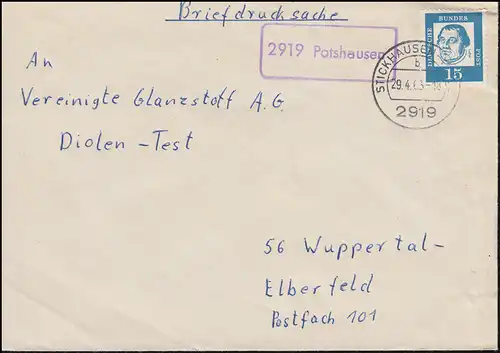 Briefdrucksache
2919 Potshausen
DEUTSCHE BUNDESPOST
15
STICKHAUSEN
b
29.4.63
2919
An
Vereinigte Glanzstoff A.G.
Diolen-Test
56 Wuppertal-
Elberfeld
Postfach 101